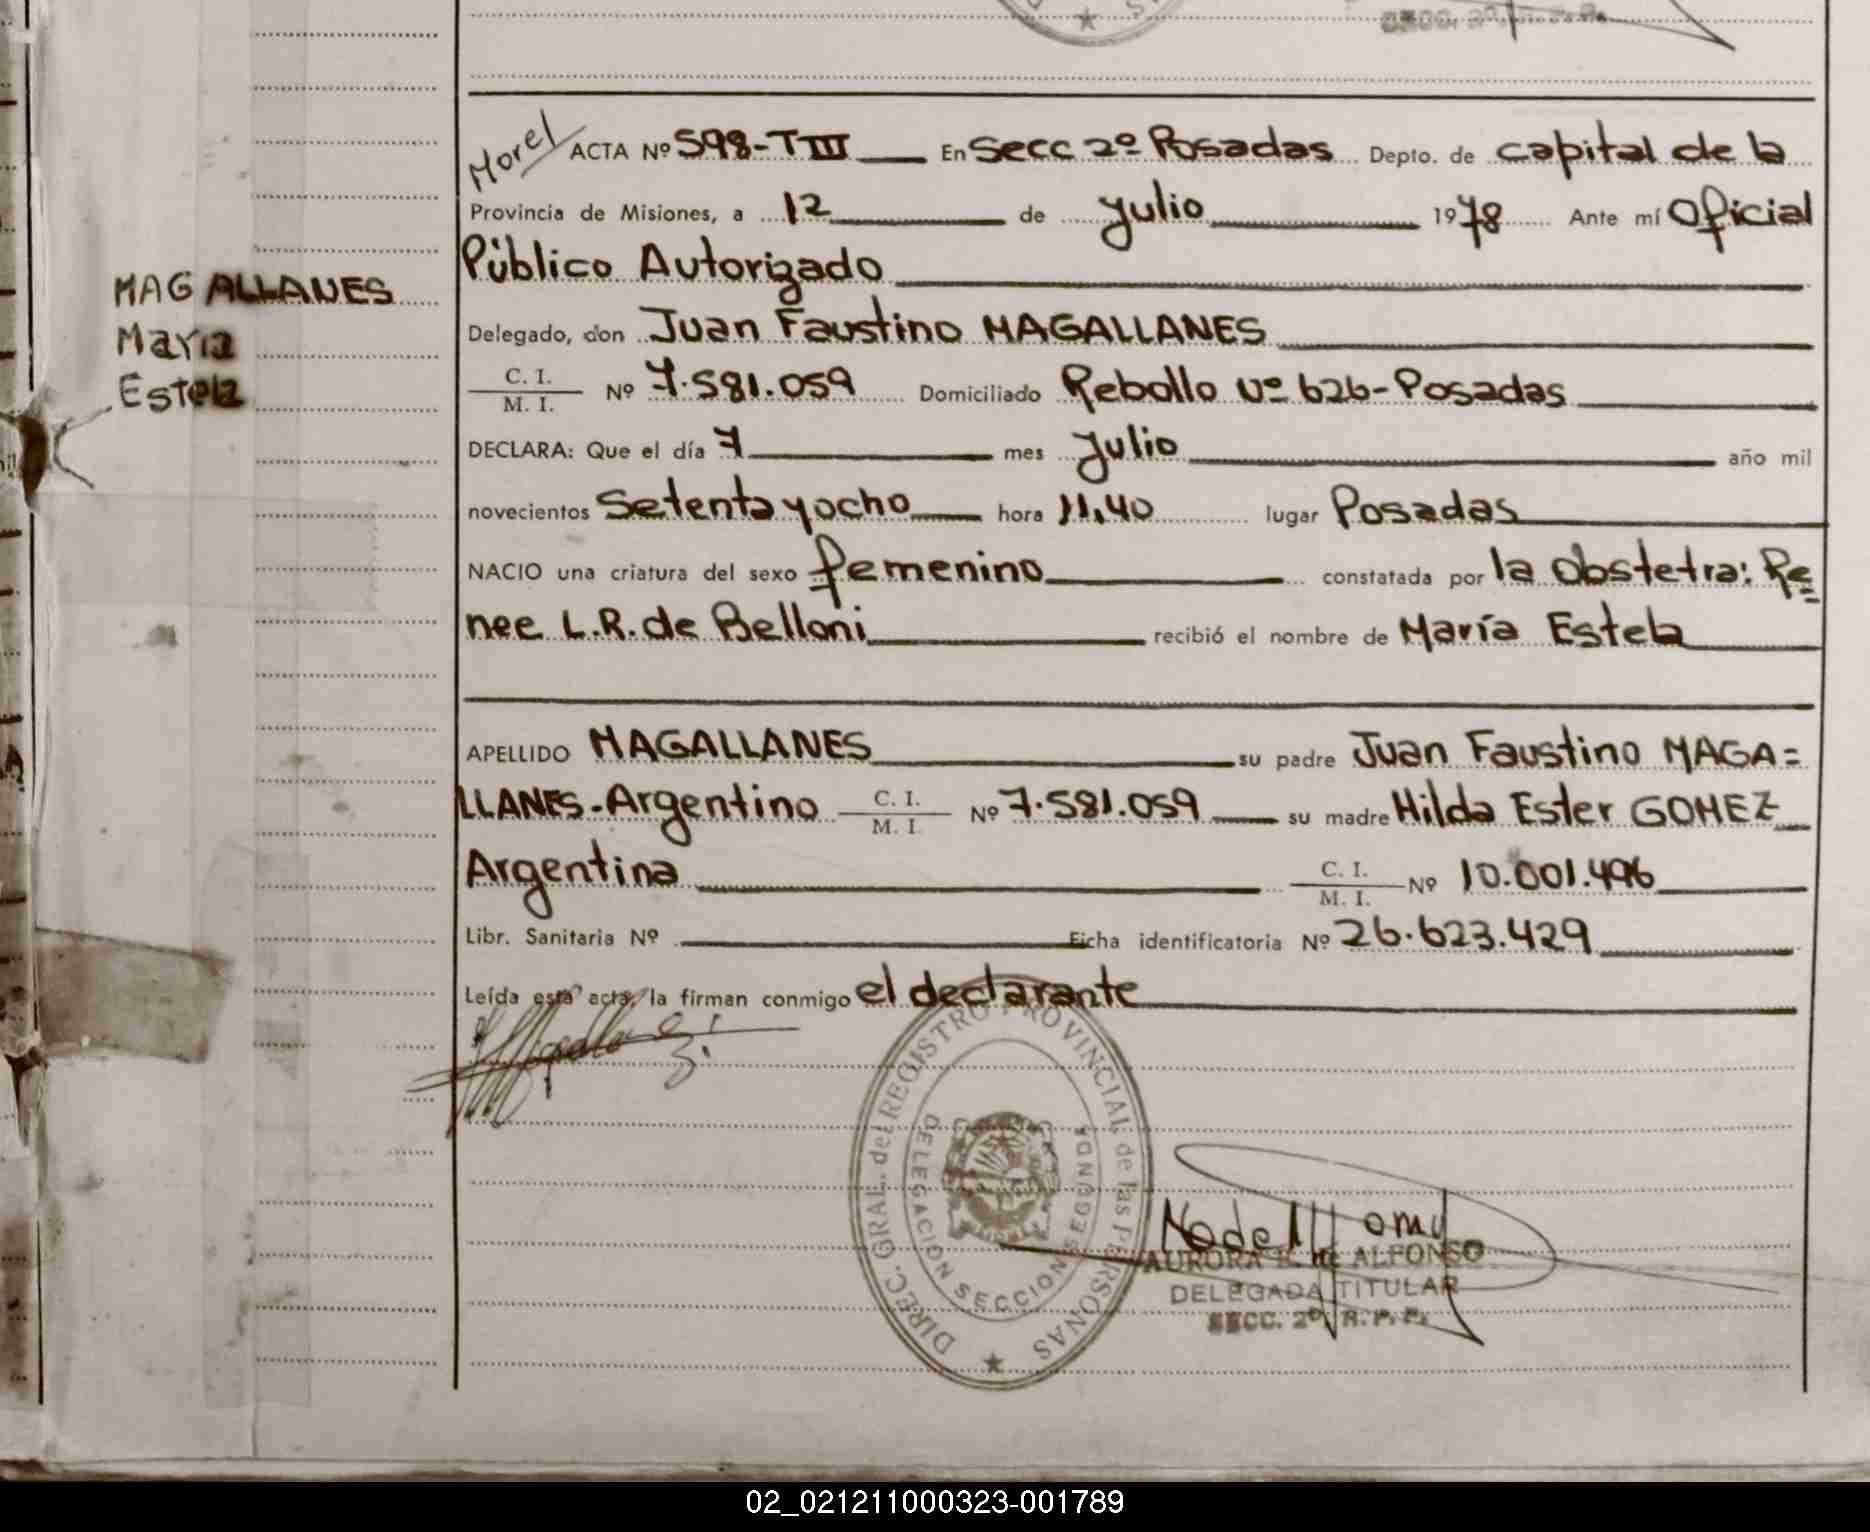 SECC. 2º R. P. P.
Morel ACTA Nº 598-TIII En Secc 2º Posadas Depto. de capital de la
Provincia de Misiones, a 12 de julio 1978 Ante mí Oficial
Público Autorizado
MAGALLANES
María
Estela
Delegado, don Juan Faustino MAGALLANES
C. I. / M. I. Nº 7.581.059 Domiciliado Rebollo Nº 626-Posadas
DECLARA: Que el día 7 mes julio año mil
novecientos Setenta y ocho hora 11,40 lugar Posadas
NACIO una criatura del sexo femenino constatada por la obstetra: Re=
nee L.R. de Belloni recibió el nombre de María Estela
APELLIDO MAGALLANES su padre Juan Faustino MAGA=
LLANES-Argentino C. I. / M. I. Nº 7.581.059 su madre Hilda Ester GOMEZ
Argentina C. I. / M. I. Nº 10.001.496
Libr. Sanitaria Nº Ficha identificatoria Nº 26.623.429
Leída esta acta, la firman conmigo el declarante
DIREC. GRAL. del REGISTRO PROVINCIAL de las PERSONAS
DELEGACION SECCION SEGUNDA
AURORA de ALFONSO
DELEGADA TITULAR
SECC. 2º R. P. P.
02_021211000323-001789